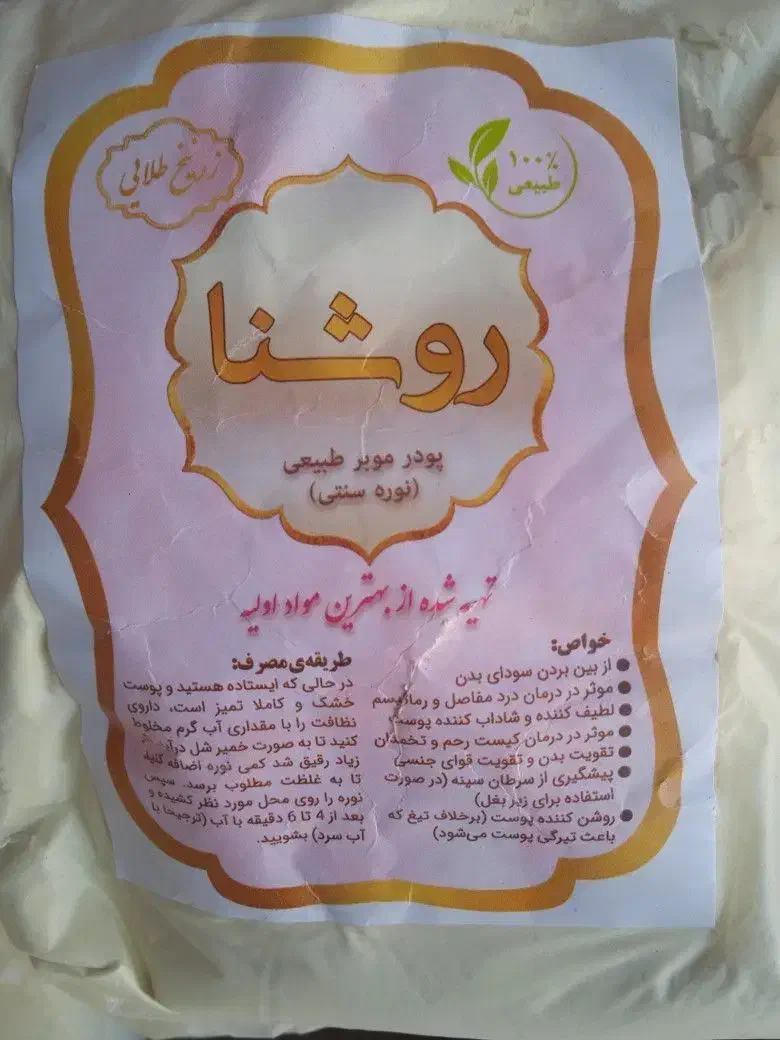 ۱۰۰٪
طبیعی
زرنیخ طلایی
روشنا
پودر موبر طبیعی
(نوره سنتی)
تهیه شده از بهترین مواد اولیه
خواص:
از بین بردن سودای بدن
موثر در درمان درد مفاصل و رماتیسم
لطیف کننده و شاداب کننده پوست
موثر در درمان کیست رحم و تخمدان
تقویت بدن و تقویت قوای جنسی
پیشگیری از سرطان سینه (در صورت
استفاده برای زیر بغل)
روشن کننده پوست (برخلاف تیغ که
باعث تیرگی پوست می‌شود)
طریقه‌ی مصرف:
در حالی که ایستاده هستید و پوست
خشک و کاملا تمیز است، داروی
نظافت را با مقداری آب گرم مخلوط
کنید تا به صورت خمیر شل
زیاد رقیق شد کمی نوره اضافه کنید
تا به غلظت مطلوب برسد. سپس
نوره را روی محل مورد نظر کشیده و
بعد از 4 تا 6 دقیقه با آب (ترجیحا با
آب سرد) بشویید.